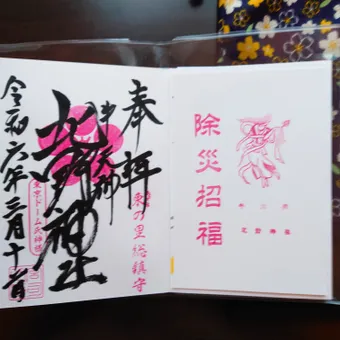 除災招福
北野神社
奉拝
の里総鎮守
牛天神
北野神社
東京ドーム氏神様
令和六年三月十